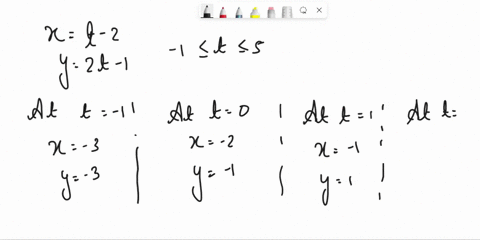 x = t - 2
y = 2t - 1
-1 ≤ t ≤ 5
At t = -1
x = -3
y = -3
At t = 0
x = -2
y = -1
At t = 1
x = -1
y = 1
At t =